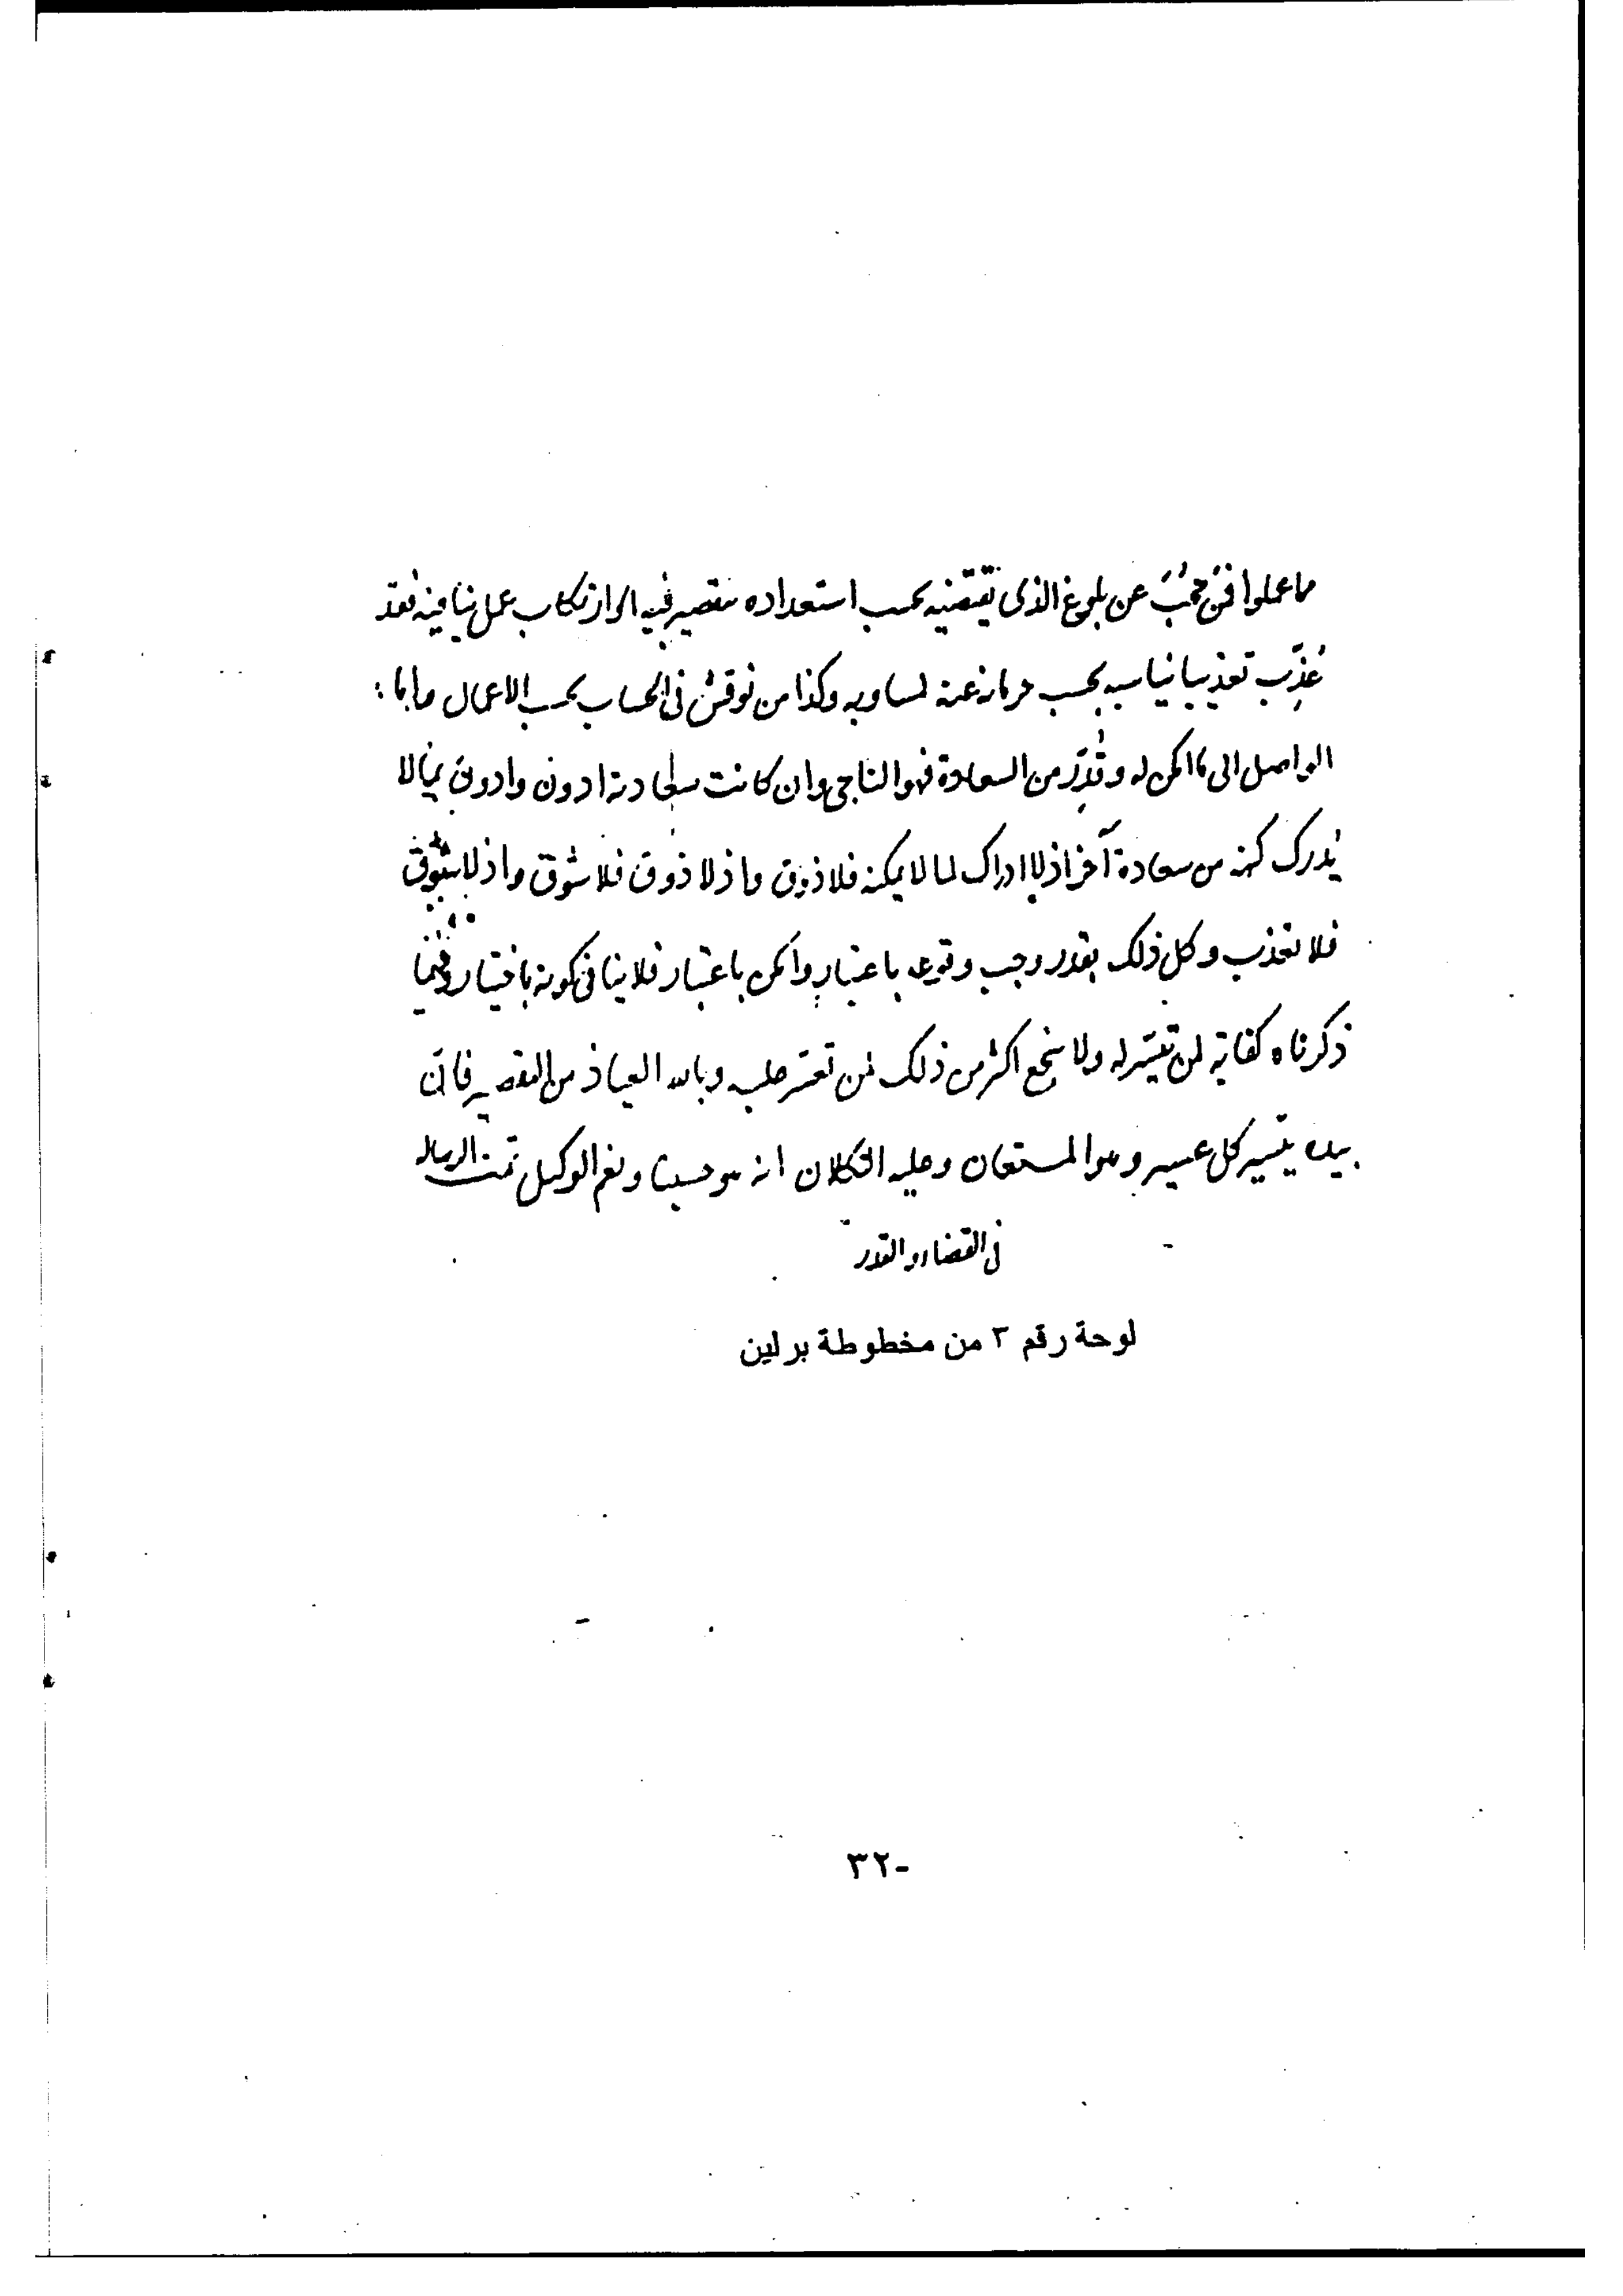 ما عملوا فمن حجب عن بلوغ الذي يقتضيه بحسب استعداده بتقصير فيه او ارتكاب عمل ينافيه فقد
عُذِّب تعذيبا يناسبه بحسب حرمانه عنه لمساويه وكذا من نوقش في الحساب بحسب الاعمال واما
الواصل الى ما امكن له وقُدِّر من السعادة فهو الناجي وان كانت سعادته ادون وادون مما لا
يُدرك كنهه من سعادة آخر اذ لا ادراك لما لا يمكنه فلا ذوق واذ لا ذوق فلا شوق واذ لا شوق
فلا تعذب وكل ذلك بقدر وجب وقوعه باعتبار وامكن باعتبار فلا ينافي كونه باختيار وفيما
ذكرناه كفاية لمن تيسّر له ولا ينجع اكثر من ذلك لمن تعسّر عليه وبالله العياذ من التقصير فانّ
بيده تيسير كل عسير وهو المستعان وعليه التكلان انه هو حسبنا ونعم الوكيل تمت الرساله
في القضاء والقدر
لوحة رقم ٣ من مخطوطة برلين
-٣٢